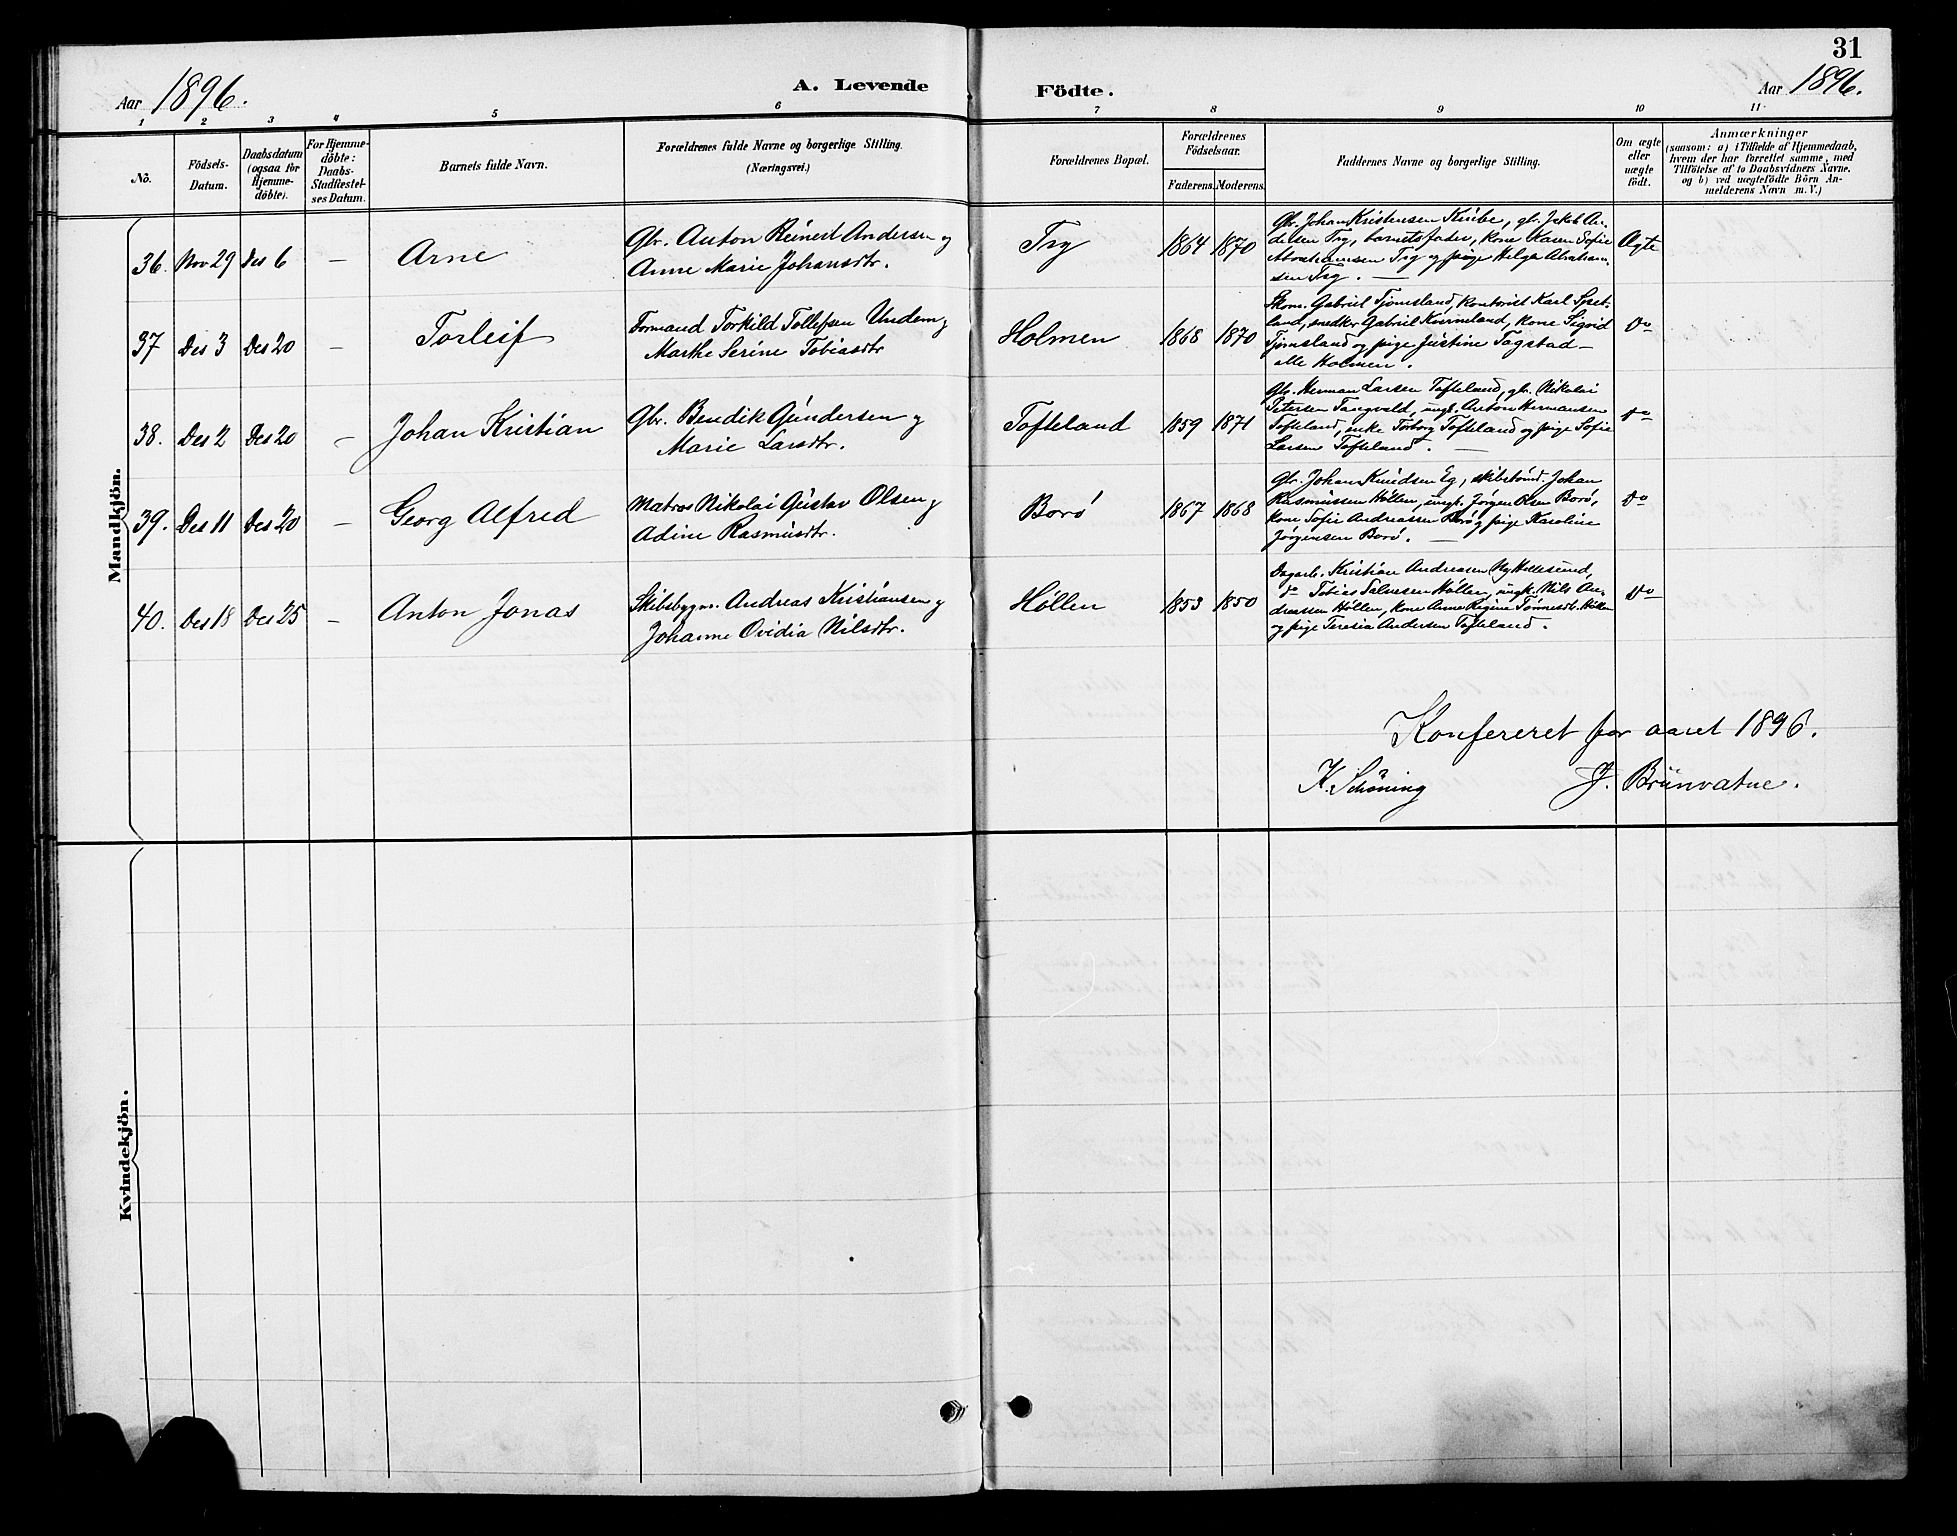 31
Aar 1896.
A. Levende Födte.
Aar 1896.
1 2 3 4 5 6 7 8 9 10 11
No.
Födsels-
Datum.
Daabsdatum
(ogsaa for
Hjemme-
döbte).
For Hjemme-
döbte:
Daabs-
Stadfæstel-
ses Datum.
Barnets fulde Navn.
Forældrenes fulde Navne og borgerlige Stilling.
(Næringsvei.)
Forældrenes Bopæl.
Forældrenes
Födselsaar.
Faderens. Moderens.
Faddernes Navne og borgerlige Stilling.
Om ægte
eller
uægte
født.
Anmærkninger
(saasom: a) i Tilfælde af Hjemmedaab,
hvem der har forrettet samme, med
Tilföielse af to Daabsvidners Navne,
og b) ved uægtefödte Börn An-
melderens Navn m. V.)
Mandkjön.
36. Nov 29 Des 6 — Arne
Gbr. Anton Reinert Andersen og
Anne Marie Johansdtr.
Try 1864 1870
Gbr. Johan Kristensen Kirke, gb. Jakob An-
dersen Try, barnets fader, kone Karen Sofie
Abrahamsen Try og pige Helga Abraham-
sen Try. —
Ægte
37 Des 3 Des 20 — Torleif
Formand Torkild Tollefsen Undem og
Marthe Serine Tobiasdtr
Holmen 1868 1870
Gabriel Tjomsland, kontorist Karl
land, snedker Gabriel Kvivneland, kone Sigrid
Tjomsland og pige Justine Tagstad —
alle Holmen.
do
38. Des 2 Des 20 — Johan Kristian
Gbr. Bendik Gundersen og
Marie Larsdtr.
Tofteland 1859 1871
Gbr. Herman Larsen Tofteland, gb. Nikolai
Petersen Tangvald, ungk. Anton Hermansen
Tofteland, enke Torborg Tofteland og pige Sofie
Larsen Tofteland. —
do
39. Des 11 Des 20 — Georg Alfred
Matros Nikolai Gustav Olsen og
Adine Rasmusdtr.
Borø 1867 1868
Gbr. Johan Knudsen Eg, skibstømd. Johan
Rasmussen Høllen, ungk. Jørgen Olsen Borø,
kone Sofie Andreassen Borø og pige Karoline
Jørgensen Borø. —
do
40. Des 18 Des 25 — Anton Jonas
Skibsbygm. Andreas Kristiansen og
Johanne Ovidia Nilsdtr.
Høllen 1853 1850
Dagarb. Kristian Andreasen Ny Hellesund,
do Tobias Salvesen Høllen, ungk. Nils An-
dreassen Høllen, kone Anne Regine Tønnesdt. Høllen
og pige Teresia Andersen Tofteland.
do
Konfereret for aaret 1896.
K. Schøning J. Brunvatne.
Kvindekjön.